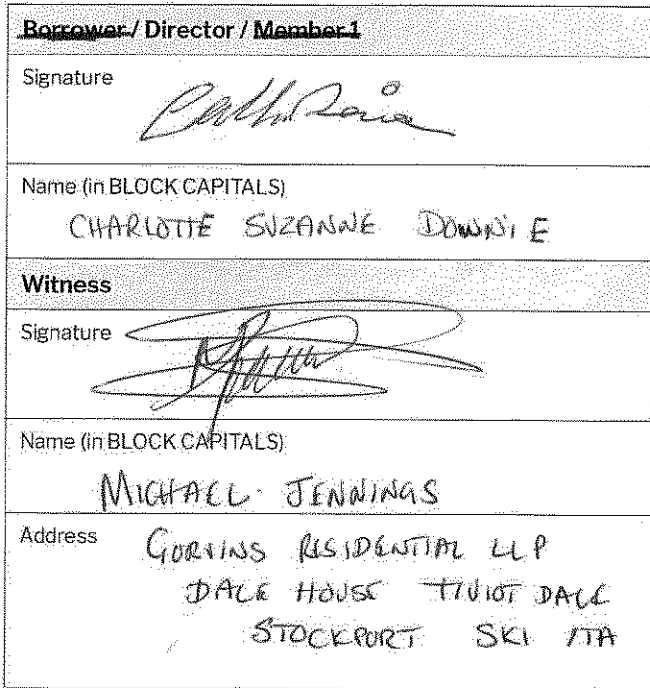 Borrower / Director / Member 1
Signature
Name (in BLOCK CAPITALS)
CHARLOTTE SUZANNE DOWNIE
Witness
Signature
Name (in BLOCK CAPITALS)
MICHAEL JENNINGS
Address GORVINS RESIDENTIAL LLP
DALE HOUSE TIVIOT DALE
STOCKPORT SK1 1TA